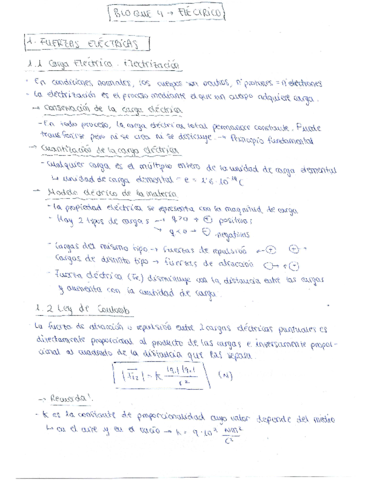 BLOQUE 4 → ELÉCTRICO
1. FUERZAS ELÉCTRICAS
1.1 Carga Eléctrica. Electrización
- En condiciones normales, los cuerpos son neutros, nº protones = nº electrones
- La electrización es el proceso mediante el que un cuerpo adquiere carga.
→ Conservación de la carga eléctrica
- En todo proceso, la carga eléctrica total permanece constante. Puede
transferirse pero ni se crea ni se destruye → Principio fundamental
→ Cuantización de la carga eléctrica
- Cualquier carga es el múltiplo entero de la unidad de carga elemental
↳ unidad de carga elemental - e = 1'6 · 10⁻¹⁹ C
→ Modelo eléctrico de la materia
- La propiedad eléctrica se representa con la magnitud de carga
- Hay 2 tipos de cargas → q > 0 → + positivas
→ q < 0 → - negativas
- Cargas del mismo tipo → fuerzas de repulsión
Cargas de distinto tipo → fuerzas de atracción
- Fuerza eléctrica (Fe) disminuye con la distancia entre las cargas
y aumenta con la cantidad de carga.
1.2 Ley de Coulomb
La fuerza de atracción o repulsión entre 2 cargas eléctricas puntuales es
directamente proporcional al producto de las cargas e inversamente propor-
cional al cuadrado de la distancia que las separa.
(N)
→ Recuerda!
- k es la constante de proporcionalidad cuyo valor depende del medio
↳ en el aire y en el vacío → k = 9 · 10⁹